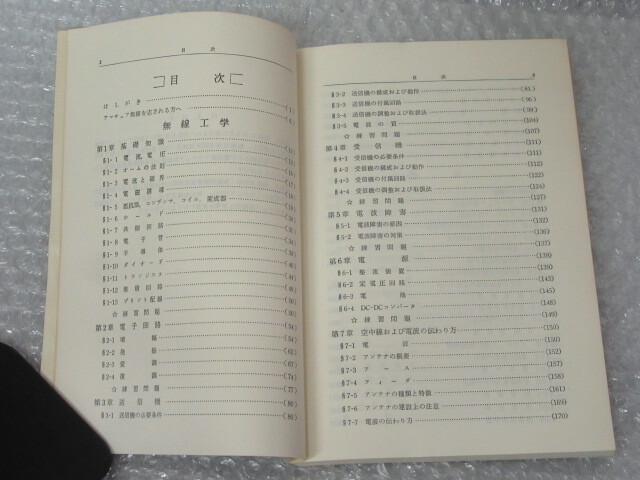 2 目次
目次
はしがき (1)
アマチュア無線を志される方へ
無線工学
第1章 基礎知識
§1-1 電流，電圧
§1-2 オームの法則
§1-3 電流と磁界
§1-4 電磁誘導
§1-5 抵抗器，コンデンサ，コイル，変成器
§1-6 シールド
§1-7 共振回路
§1-8 電子管
§1-9 半導体
§1-10 ダイオード
§1-11 トランジスタ
§1-12 集積回路
§1-13 プリント配線
☆練習問題 (50)
第2章 電子回路 (54)
§2-1 増幅 (54)
§2-2 発振 (62)
§2-3 変調 (67)
§2-4 復調 (74)
☆練習問題 (77)
第3章 送信機 (80)
§3-1 送信機の必要条件 (80)
目次
§3-2 送信機の構成および動作 (81)
§3-3 送信機の付属回路 (96)
§3-4 送信機の調整および取扱法 (99)
§3-5 電波の質 (104)
☆練習問題 (107)
第4章 受信機 (111)
§4-1 受信機の必要条件
§4-2 受信機の構成および動作
§4-3 受信機の付属回路
§4-4 受信機の調整および取扱法
☆練習問題
第5章 電波障害 (131)
§5-1 電波障害の原因 (132)
§5-2 電波障害の対策 (136)
☆練習問題 (137)
第6章 電源 (139)
§6-1 整流装置
§6-2 定電圧回路 (143)
§6-3 電池 (145)
§6-4 DC-DCコンバータ (148)
☆練習問題 (149)
第7章 空中線および電波の伝わり方 (150)
§7-1 電波 (150)
§7-2 アンテナの概要 (152)
§7-3 アース (157)
§7-4 フィーダ (158)
§7-5 アンテナの種類と特徴 (161)
§7-6 アンテナの建設上の注意 (169)
§7-7 電波の伝わり方 (170)